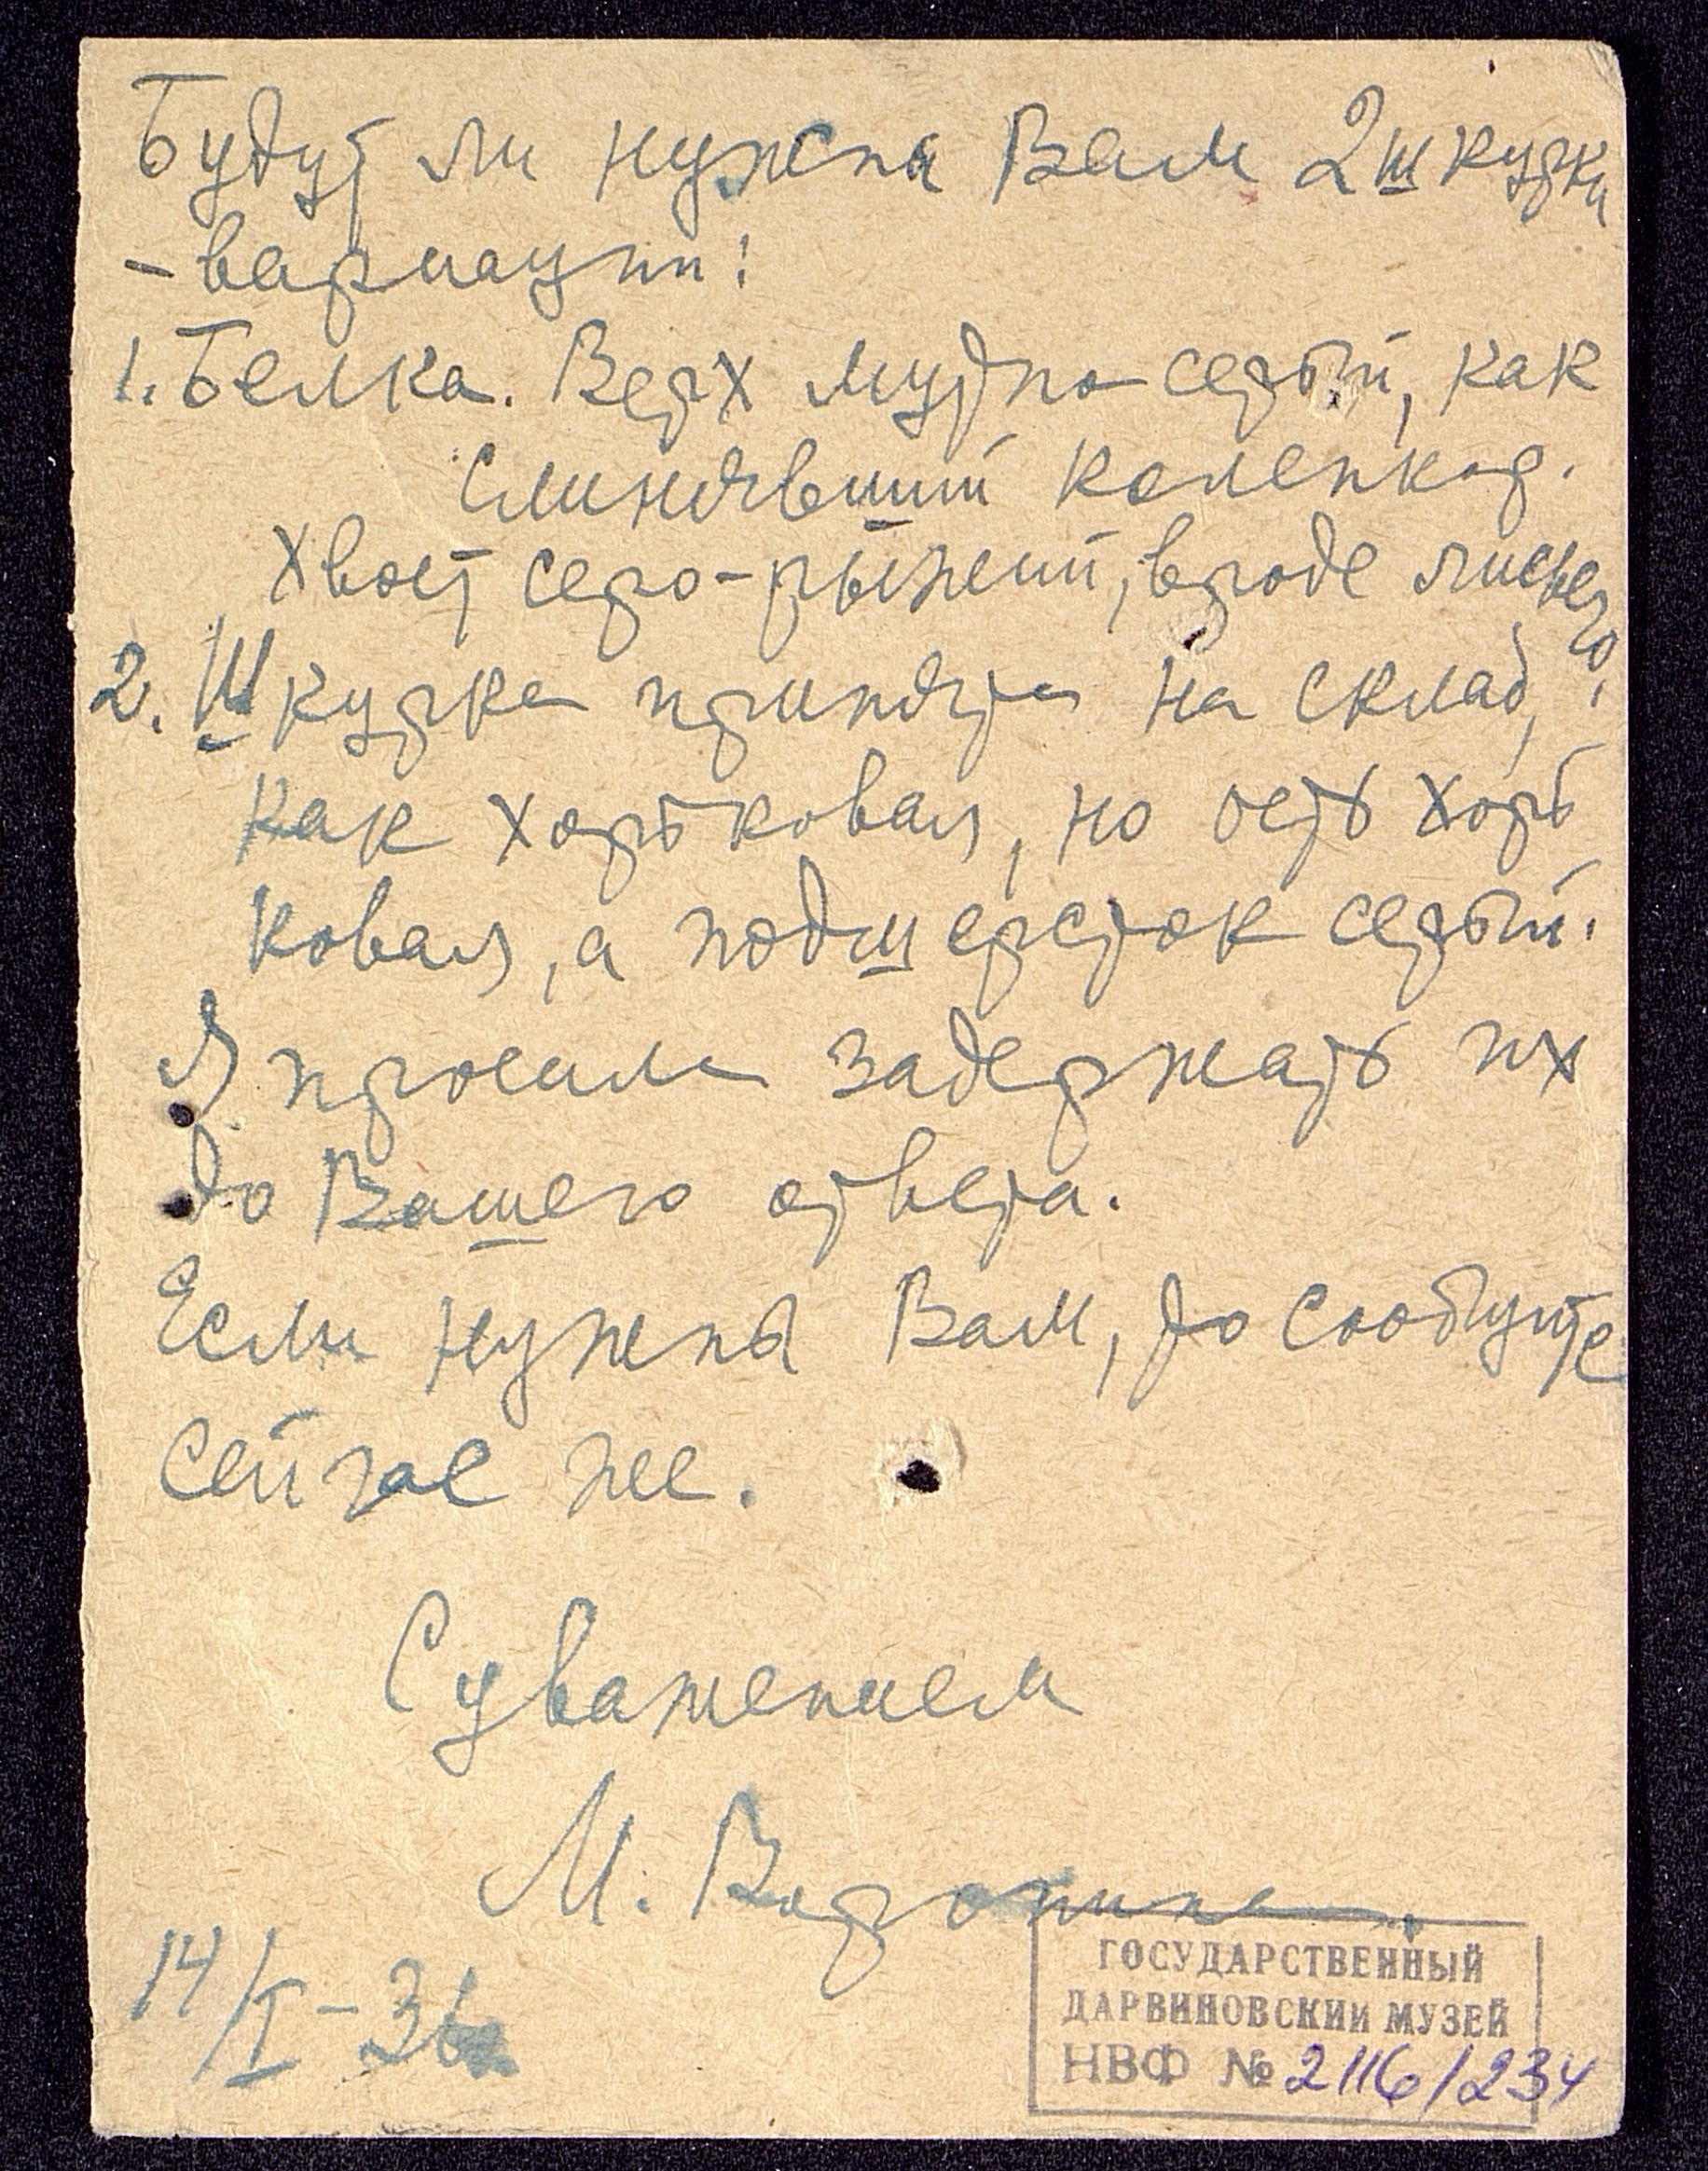 Будут ли нужны Вам 2 шкурки
- вариации:
1. Белка. Верх мутно серый, как
слинявший коленкор.
Хвост серо-рыжий, вроде лисьего.
2. Шкурка принята на склад,
как хорьковая, но ость хорь
ковая, а подшерсток серый.
Я просила задержать их
до Вашего ответа.
Если нужны Вам, то сообщите
сейчас же.
С уважением
М. Воронина.
14/I-36
ГОСУДАРСТВЕННЫЙ
ДАРВИНОВСКИЙ МУЗЕЙ
НВФ № 2116/234